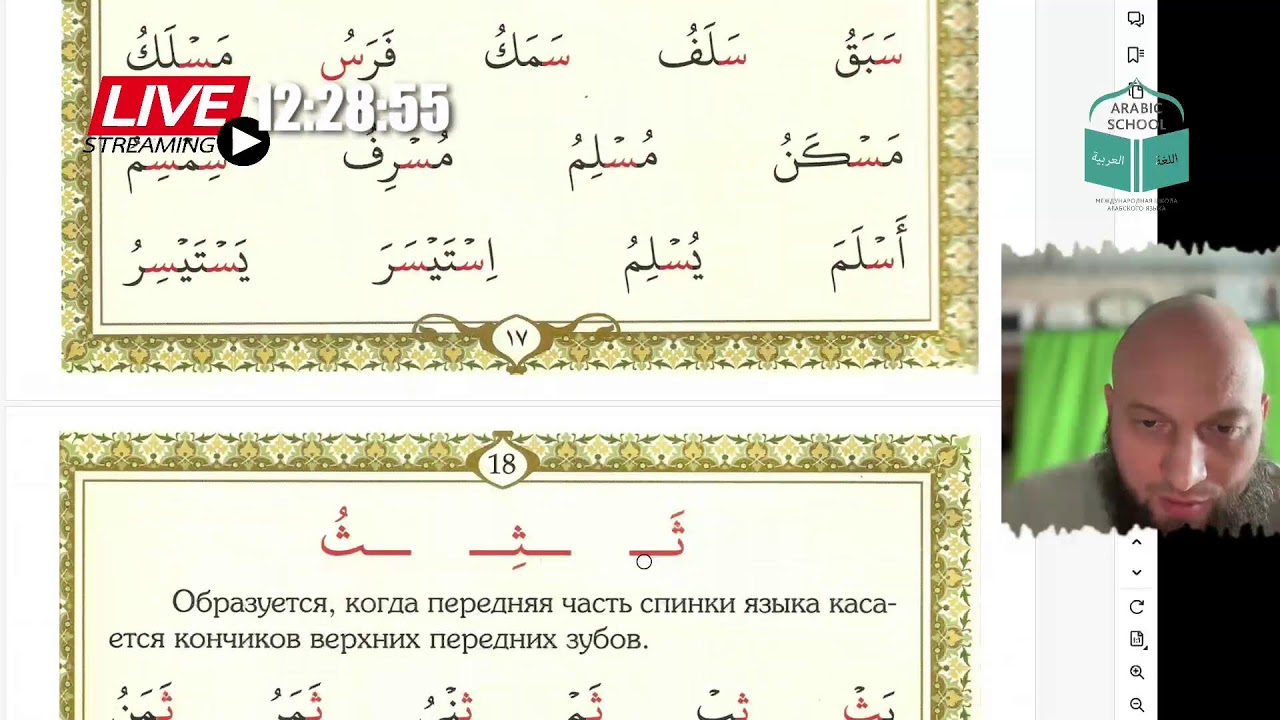 سَبَقُ سَلَفُ سَمَكُ فَرَسُ مَسْلَكُ
LIVE 12:28:55
STREAMING
مَسْكَنُ مُسْلِمُ مُسْرِفُ سِمْسِمُ
ARABIC
SCHOOL
العربية اللغة
МЕЖДУНАРОДНАЯ ШКОЛА
АРАБСКОГО ЯЗЫКА
أَسْلَمَ يُسْلِمُ اِسْتَيْسَرَ يَسْتَيْسِرُ
١٧
18
ثَـ ـثِـ ـثُ
Образуется, когда передняя часть спинки языка каса-
ется кончиков верхних передних зубов.
ثَمَرُ ثَمَنُ